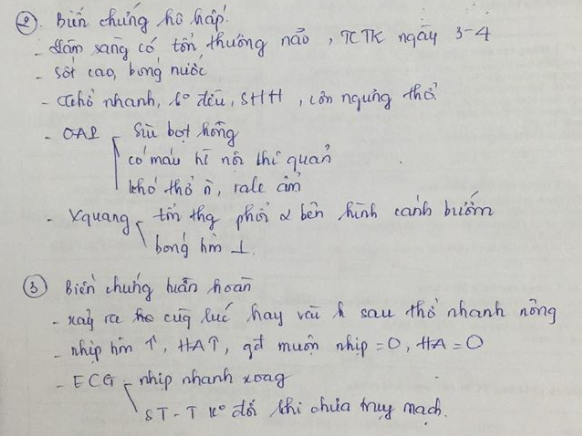 ② Biến chứng hô hấp.
- Lâm sàng có tổn thương não, TCTK ngày 3-4
- Sốt cao, bóng nước
- Thở nhanh, kº đều, SHH, cơn ngưng thở
- OAP Sùi bọt hồng
có máu khi nội khí quản
khó thở ì, rale ẩm
- Xquang tổn thg phổi 2 bên hình cánh bướm
bóng tim ⊥.
③ Biến chứng tuần hoàn
- xảy ra cùg lúc hay vài h sau thở nhanh nông
- nhịp tim ↑, HA↑, gđ muộn nhịp = 0, HA = 0
- ECG nhịp nhanh xoag
ST-T kº đổi khi chưa truỵ mạch.